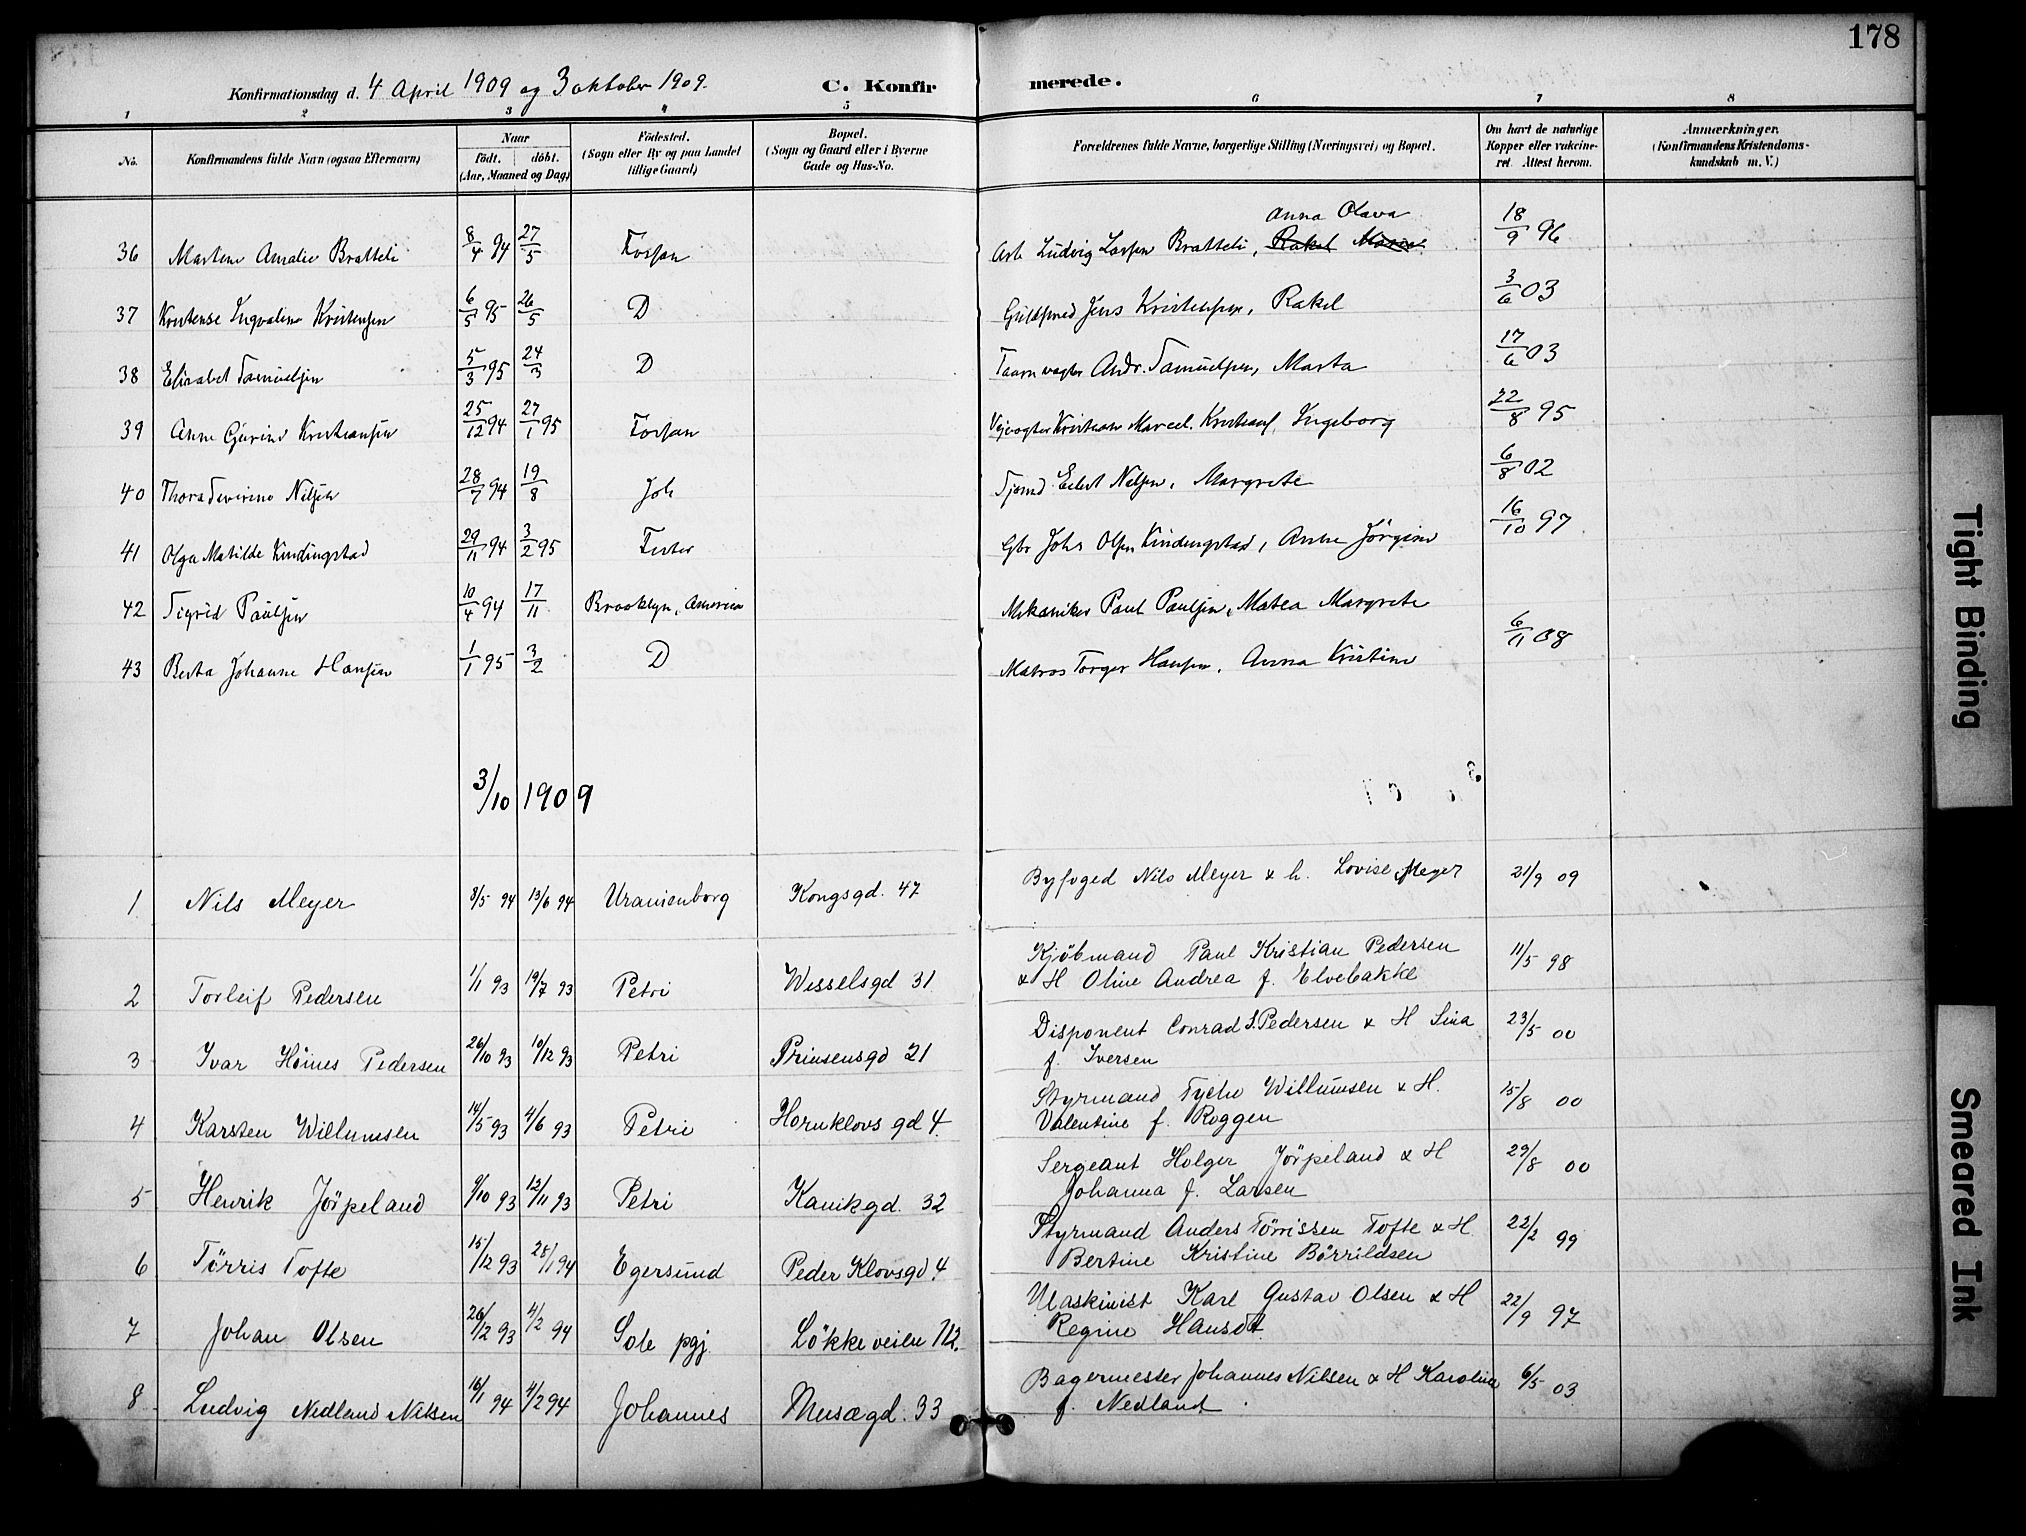 178
Konfirmationsdag d. 4 April 1909 og 3 oktober 1909. C. Konfirmerede.
1 2 3 4 5 6 7 8
No. Konfirmandens fulde Navn (ogsaa Efternavn) Naar födt. döbt. (Aar, Maaned og Dag) Födested. (Sogn eller By og paa Landet tillige Gaard) Bopæl. (Sogn og Gaard eller i Byerne Gade og Hus-No. Forældrenes fulde Navne, borgerlige Stilling (Næringsvei) og Bopæl. Om havt de naturlige Kopper eller vakcineret. Attest herom. Anmærkninger. (Konfirmandens Kristendomskundskab m. V.)
Anna Olava
36 Martine Amalie Bratteli 8/4 94 27/5 Arb Ludvig Larsen Bratteli, Rakel Marie 18/9 96
37 Kristense Ingvaline Kristensen 6/5 95 26/5 D Jens Kristensen, Rakel 3/6 03
38 Elisabet Samuelsen 5/3 95 24/3 D Taarnvagter Andr. Samuelsen, Marta 17/6 03
39 Anne Gurine Kristiansen 25/12 94 27/1 95 Kristian Marcel. Kristians, Ingeborg 22/8 95
40 Thora Severine Nilsen 28/7 94 19/8 Joh Eilert Nilsen, Margrete 6/8 02
41 Olga Matilde Kindingstad 29/11 94 3/2 95 Gbr Johs Olsen Kindingstad, Anne Jörgine 16/10 97
42 Sigrid Paulsen 10/4 94 17/11 Brooklyn, America Mekaniker Paul Paulsen, Matea Margrete
43 Berta Johanne Hansen 1/1 95 3/2 D Matros Torger Hansen, Anna Kristine 6/11 08
3/10 1909
1 Nils Meyer 8/5 94 13/6 94 Uranienborg Kongsgd. 47 Byfoged Nils Meyer & h. Lovise Meyer 21/9 09
2 Torleif Pedersen 1/1 93 19/7 93 Petri Wesselsgd 31 Kjöbmand Paul Kristian Pedersen
& H Oline Andrea f. Elvebakke 11/5 98
3 Ivar Höines Pedersen 26/10 93 10/12 93 Petri Prinsensgd 21 Disponent Conrad S. Pedersen & H Sina
f. Iversen 23/5 00
4 Karsten Willumsen 14/5 93 4/6 93 Petri Hornklovs gd 4. Styrmand Tycho Willumsen & H.
Valentine f. Roggen 15/8 00
5 Henrik Jörpeland 9/10 93 12/11 93 Petri Kanikgd. 32 Sergeant Holger Jörpeland & H
Johanna f. Larsen 29/8 00
6 Törris Tofte 15/12 93 28/1 94 Egersund Peder Klovsgd 4. Styrmand Anders Törrissen Tofte & H
Bertine Kristine Börrildsen 22/2 99
7 Johan Olsen 26/12 93 4/2 94 Sole pgj. Lökkeveien 112. Maskinist Karl Gustav Olsen & H
Regine Hansdt 22/9 97
8 Ludvig Nedland Nilsen 16/1 94 4/2 94 Johannes Musægd. 33 Bagermester Johannes Nilsen & H Karoline
f. Nedland 6/5 03
Tight Binding
Smeared Ink